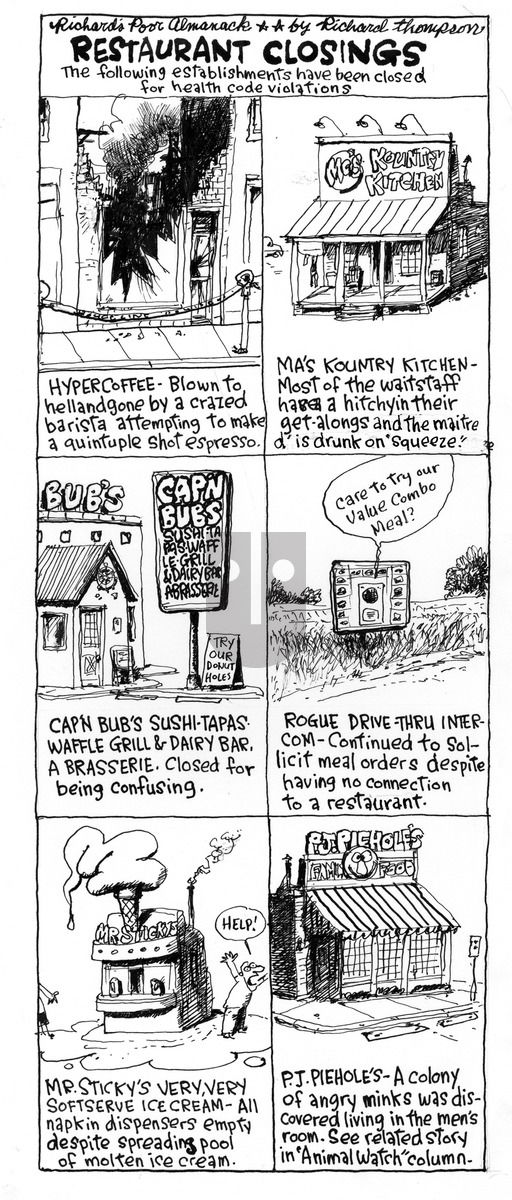 Richard's Poor Almanack ★★ by Richard Thompson
RESTAURANT CLOSINGS
The following establishments have been closed
for health code violations
MA'S KOUNTRY
KITCHEN
HYPERCOFFEE- Blown to
hell and gone by a crazed
barista attempting to make
a quintuple shot espresso.
MA'S KOUNTRY KITCHEN-
Most of the waitstaff
have a hitchy in their
get-alongs and the maitre
d' is drunk on "squeeze."
BUB'S
CAP'N
BUB'S
SUSHI-TA
PAS-WAFF
LE-GRILL
& DAIRY BAR
A BRASSERIE
TRY
OUR
DONUT
HOLES
Care to try our
Value Combo
Meal?
CAP'N BUB'S SUSHI-TAPAS-
WAFFLE GRILL & DAIRY BAR,
A BRASSERIE. Closed for
being confusing.
ROGUE DRIVE-THRU INTER-
COM- Continued to sol-
licit meal orders despite
having no connection
to a restaurant.
MR. STICKY'S
HELP!
P.J. PIEHOLE'S
FAMILY FOOD
MR. STICKY'S VERY, VERY
SOFTSERVE ICE CREAM- All
napkin dispensers empty
despite spreading pool
of molten ice cream.
P.J. PIEHOLE'S- A colony
of angry minks was dis-
covered living in the men's
room. See related story
in "Animal Watch" column-